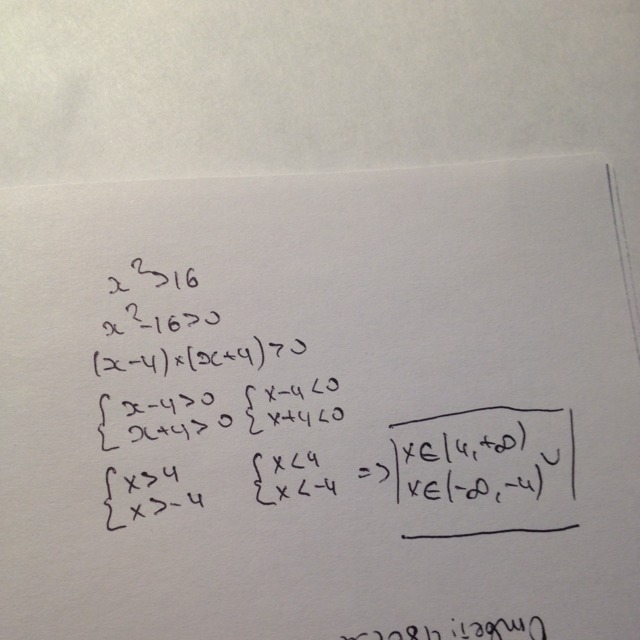 x²>16
x²-16>0
(x-4)×(x+4)>0
{ x-4>0 { x-4<0
{ x+4>0 { x+4<0
{ x>4 { x<4 => x∈(4,+∞) ∪
{ x>-4 { x<-4 x∈(-∞,-4)